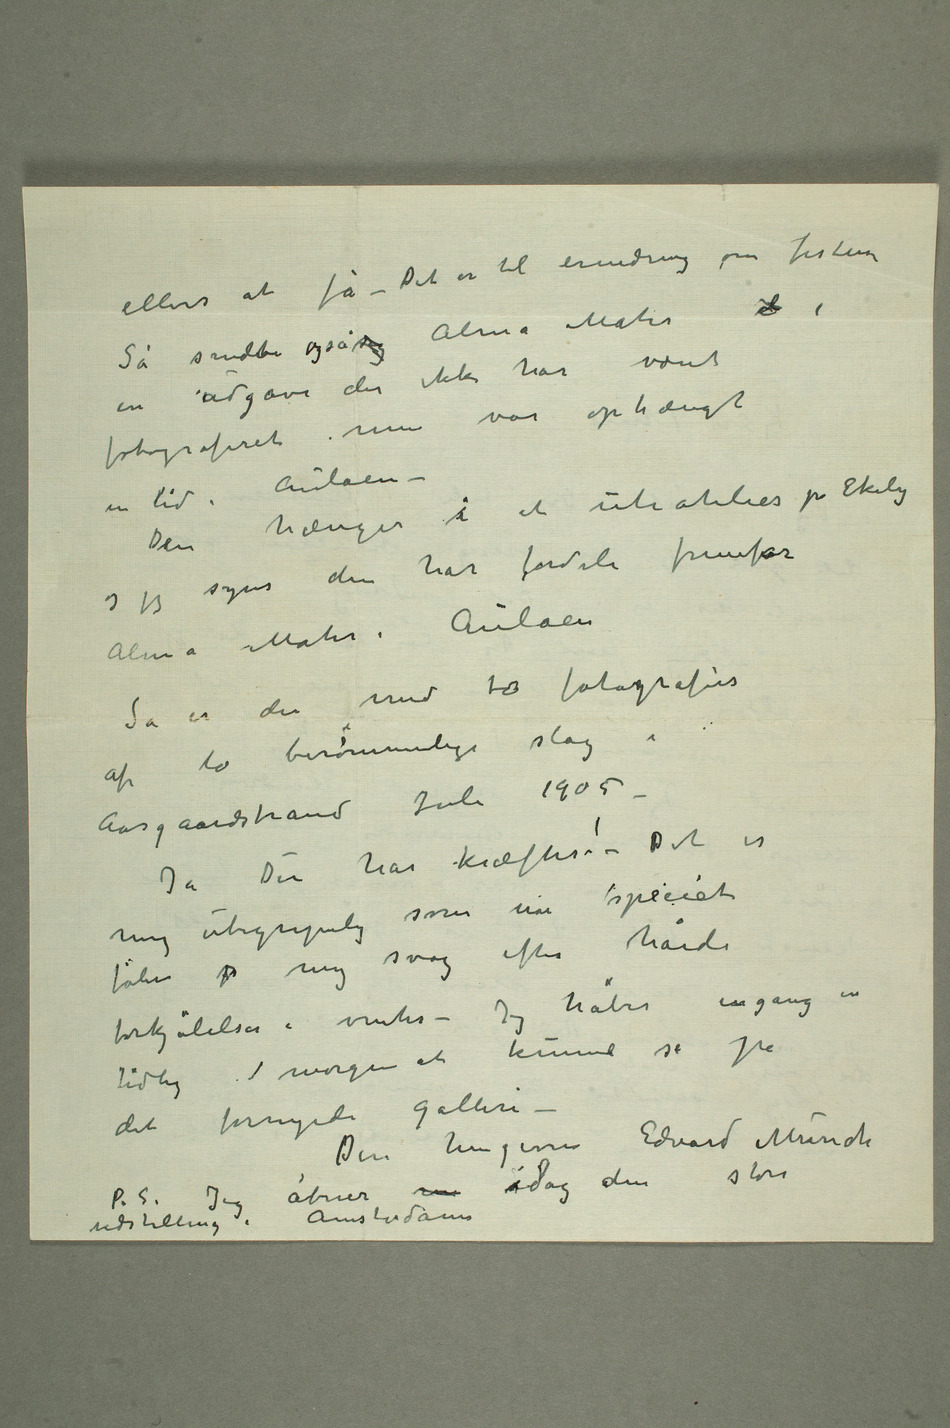 ellers at få – Det er til erindring om festen
Så sendte også Alma Mater i
en udgave der ikke har været
fotograferet men var ophængt
en tid i Aulaen –
Den hænger i et uteatelier på Ekely
og jeg synes den har fordele fremfor
Alma Mater i Aulaen
Så er der med to fotografier
af to berømmelige slag i
Aasgaardstrand Juli 1905 –
Ja Du har kræfter! – Det er
mig ubegripelig som nu specielt
føler mig svag efter hårde
forkjølelser i vinter – Jeg håber engang en
tidlig morgen at kunne se på
det fornyede galleri –
Din hengivne Edvard Munch
P.S. Jeg åbner idag den store
udstilling i Amsterdam